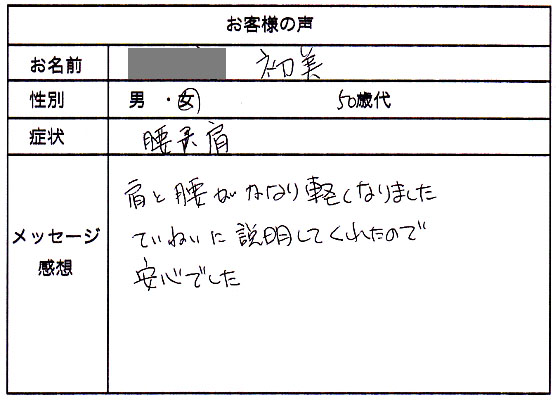 お客様の声
お名前 初美
性別 男 ・ 女 50歳代
症状 腰 肩
メッセージ 感想
肩と腰がかなり軽くなりました
ていねいに説明してくれたので
安心でした